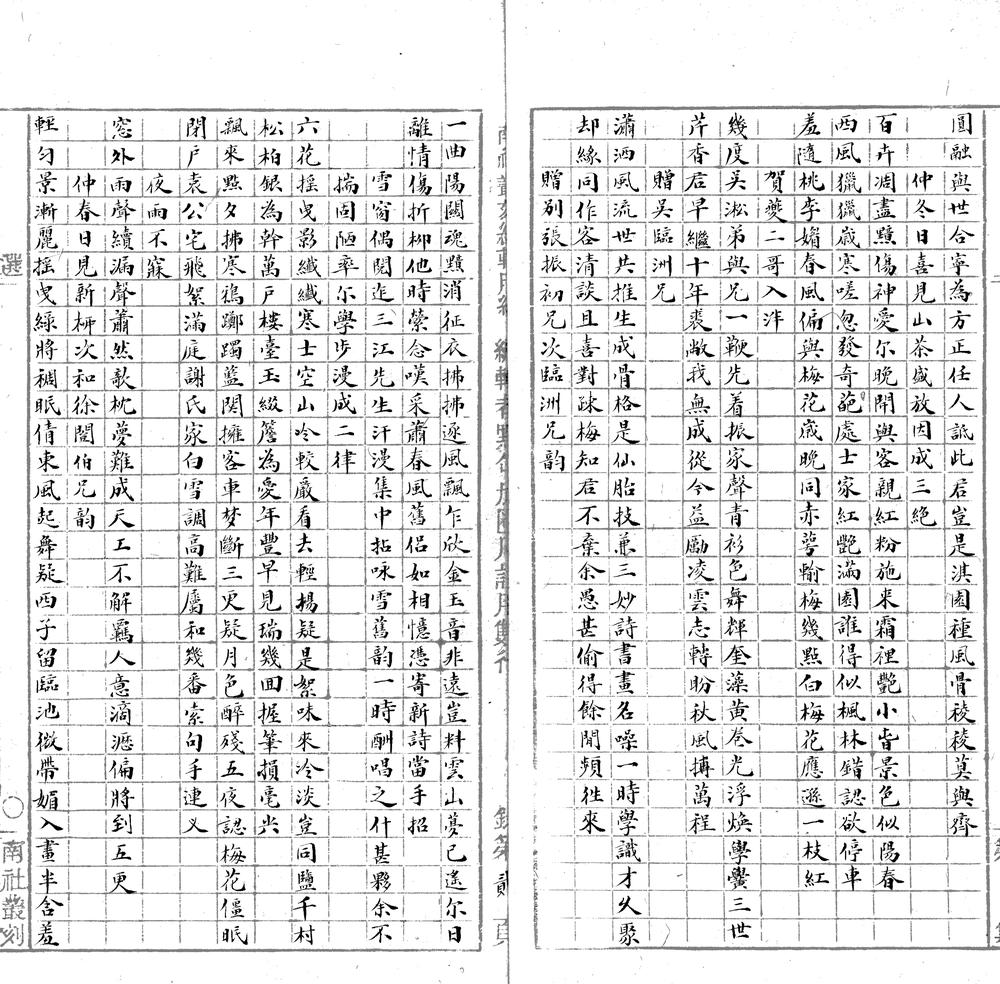 圓融與世合寧為方正任人詆此君豈是淇園種風骨稜稜莫與齊
仲冬日喜見山茶盛放因成三絶
百卉凋盡黯傷神愛尔晚開與客親紅粉施來霜裡艷小眥景色似陽春
西風獵獵歲寒嗟忽發奇葩處士家紅艷滿園誰得似楓林錯認欲停車
羞隨桃李媚春風偏與梅花歲晚同赤萼輸梅幾點白梅花應遜一枝紅
賀夔二哥入泮
幾度吳淞弟與兄一鞭先着振家聲青衫色舞輝奎藻黄卷光浮焕學黌三世
芹香君早繼十年裘敝我無成從今益勵凌雲志轉盼秋風搏萬程
贈吳臨洲兄
瀟洒風流世共推生成骨格是仙胎技兼三妙詩書畫名噪一時學識才乆聚
却緣同作客清談且喜對疎梅知君不棄余愚甚偷得餘閒頻徃來
贈别張振初兄次臨洲兄韵
一曲陽關魂黯消征衣拂拂逐風飄乍欣金玉音非遠豈料雲山夢已遙尔日
離情傷折柳他時縈念嘆采蕭春風舊侣如相憶憑寄新詩當手招
雪窗偶閱迮三江先生汗漫集中拈咏雪舊韵一時酬唱之什甚夥余不
揣固陋率尔學步漫成二律
六花摇曳影纖纖寒士空山冷較嚴看去輕揚疑是絮味來冷淡豈同鹽千村
松柏銀為幹萬戶樓臺玉綴簷為愛年豐早見瑞幾回握筆損毫尖
飄來點夕拂寒鴉躑躅藍関擁客車梦斷三更疑月色醉殘五夜認梅花僵眠
閉戶袁公宅飛絮滿庭謝氏家白雪調高難屬和幾番索句手連乂
夜雨不寐
窓外雨聲續漏聲蕭然欹枕夢難成天工不解羈人意滴瀝偏將到五更
仲春日見新柳次和徐閬伯兄韵
輕勻景漸麗摇曳緑將裯眠倩東風起舞疑西子留臨池微帶媚入畫半含羞
選
南社叢刻